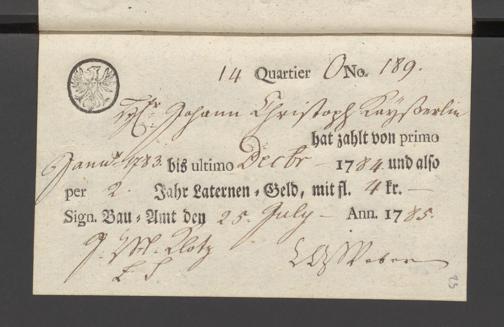 14 Quartier O No. 189.
Hr. Johann Christoph Kayßerlin
hat zahlt von primo
Janu. 1783. bis ultimo Decbr 1784. und also
per 2. Jahr Laternen-Geld, mit fl. 4 kr. —
Sign. Bau-Amt den 25. July — Ann. 1785.
Klotz
Weber